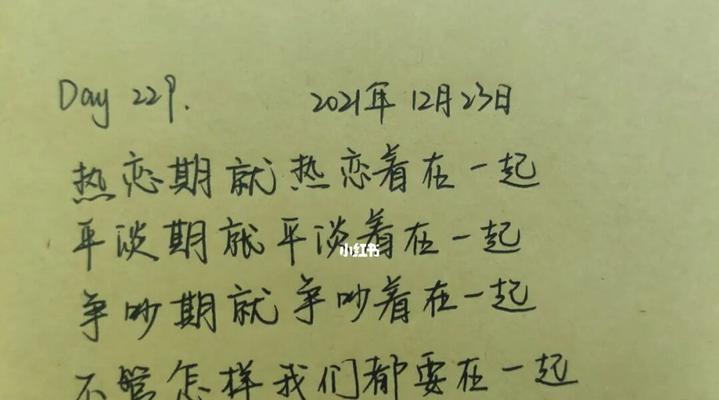 Day 229. 2021年12月23日
热恋期就热恋着在一起
平淡期就平淡着在一起
小红书
争吵期就争吵着在一起
不管怎样我们都要在一起